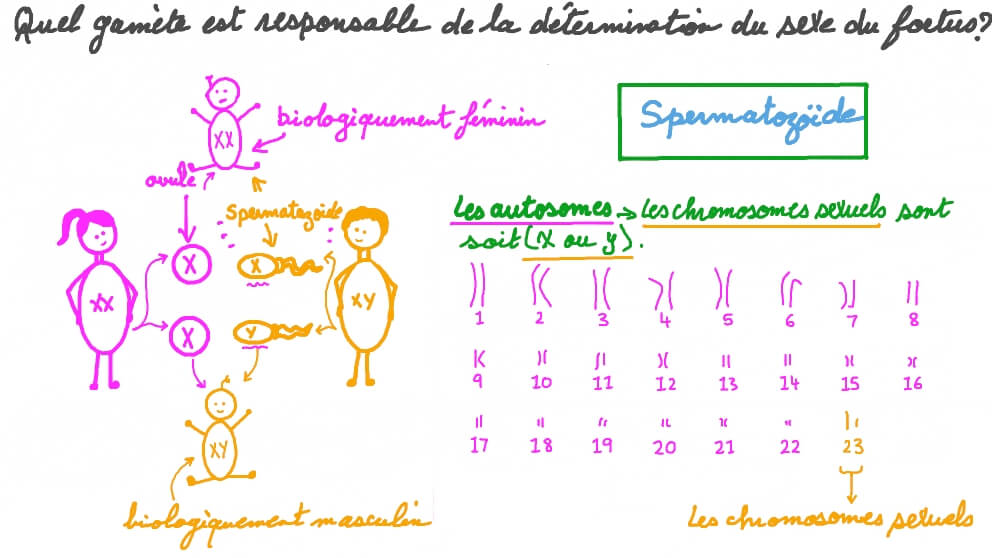 Quel gamète est responsable de la détermination du sexe du foetus?
XX
biologiquement féminin
Spermatozoïde
ovule
Spermatozoïde
Les autosomes → Les chromosomes sexuels sont
soit (X ou Y).
X
X
XX
XY
X
Y
1 2 3 4 5 6 7 8
9 10 11 12 13 14 15 16
17 18 19 20 21 22 23
XY
biologiquement masculin
Les chromosomes sexuels